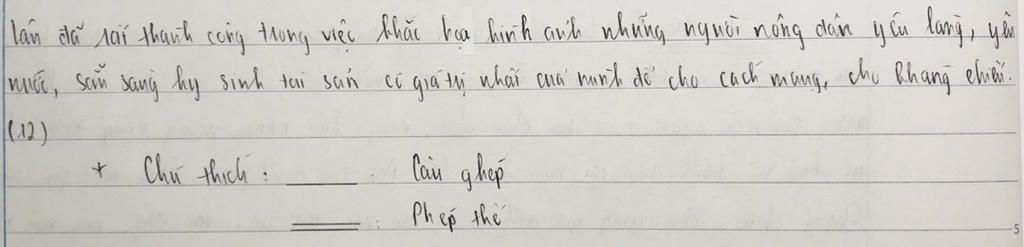 lân đã rất thành công trong việc khắc họa hình ảnh những người nông dân yêu làng, yêu
nước, sẵn sàng hy sinh tài sản có giá trị nhất của mình để cho cách mạng, cho kháng chiến.
(12)
* Chú thích : ______ : Câu ghép
______ : Phép thế
5